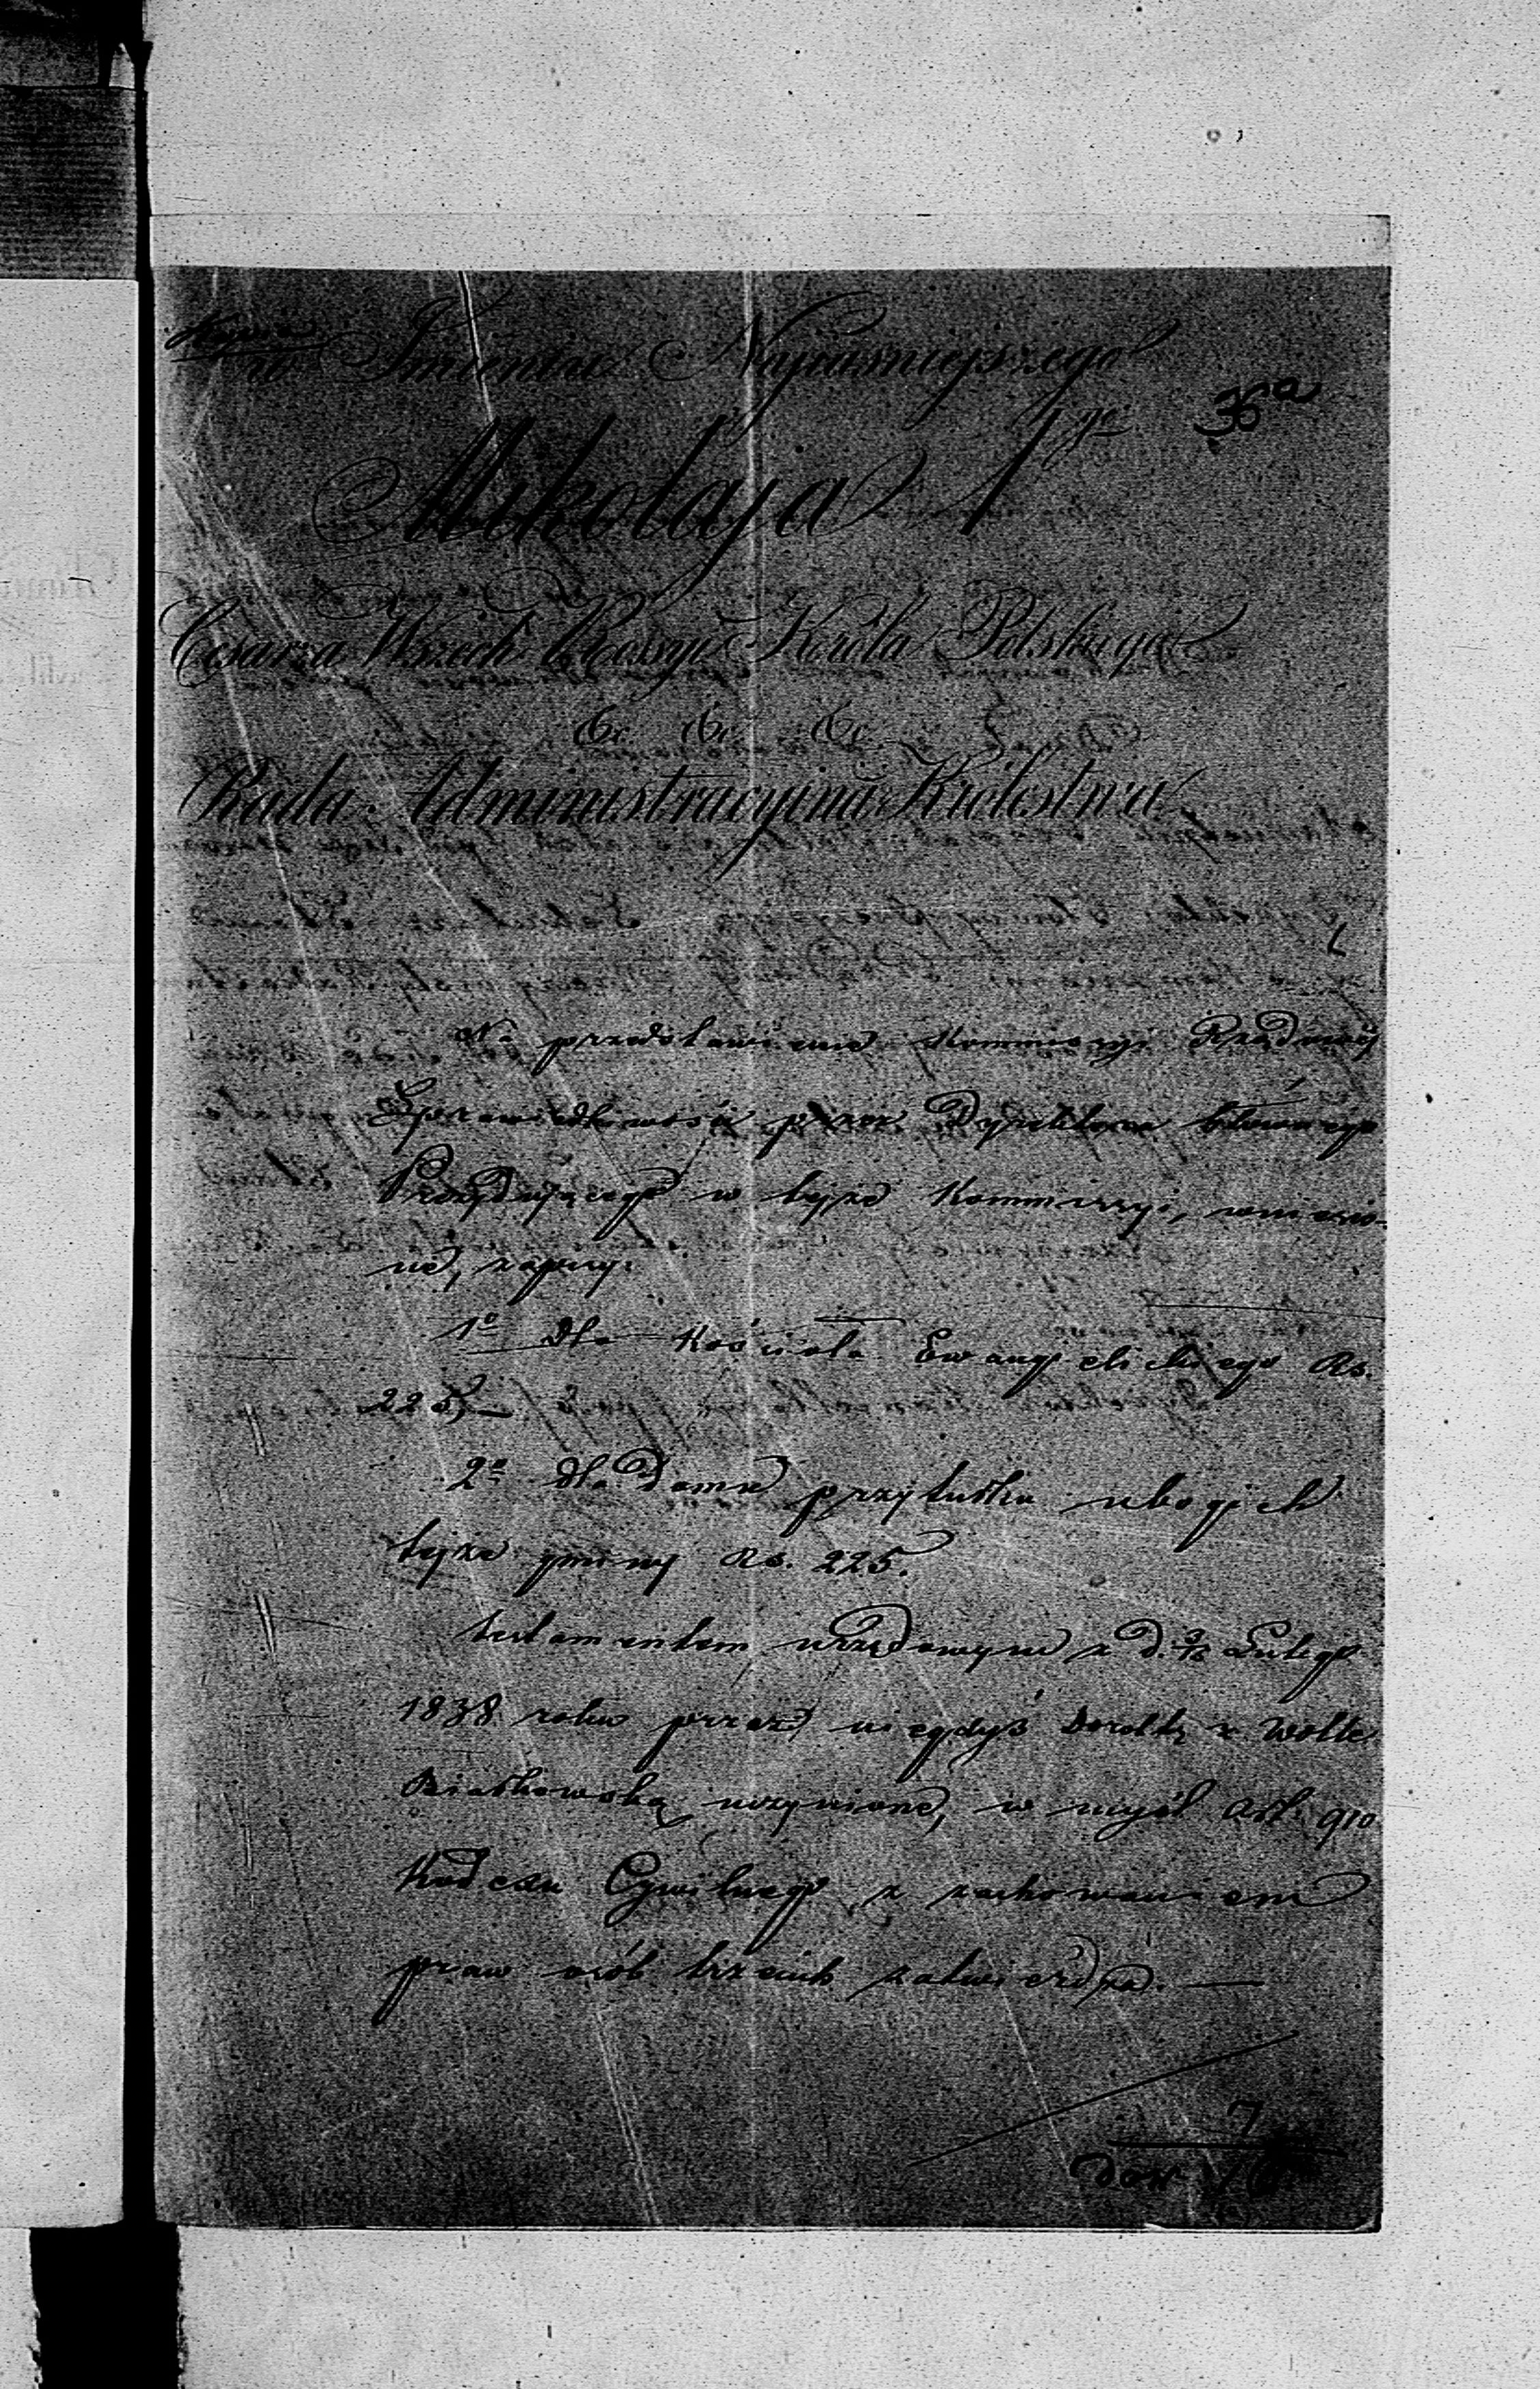 Kopia
w Imieniu Najiaśniejszego
36a
Mikołaja Igo
Cesarza Wszech Rossyi Króla Polskiego
&c &c &c
Rada Administracyjna Królestwa
Na przedstawienie Kommissyi Rządowej
Sprawiedliwości przez Dyrektora Głównego
Prezydującego w tejże Kommissyi, wniesio-
ne, zapisy.
1o Dla Kościoła Ewangelickiego Rs.
225,—
2o dla Domu przytułku ubogich
tejże gminy Rs. 225.
testamentem urzędowym z d. Lutego
1838 roku przez niegdyś Dorotę z Wolke
uczynione, w myśl Art. 910
Kodexu Cywilnego z zachowaniem
praw osób trzecich zatwierdza.—
7